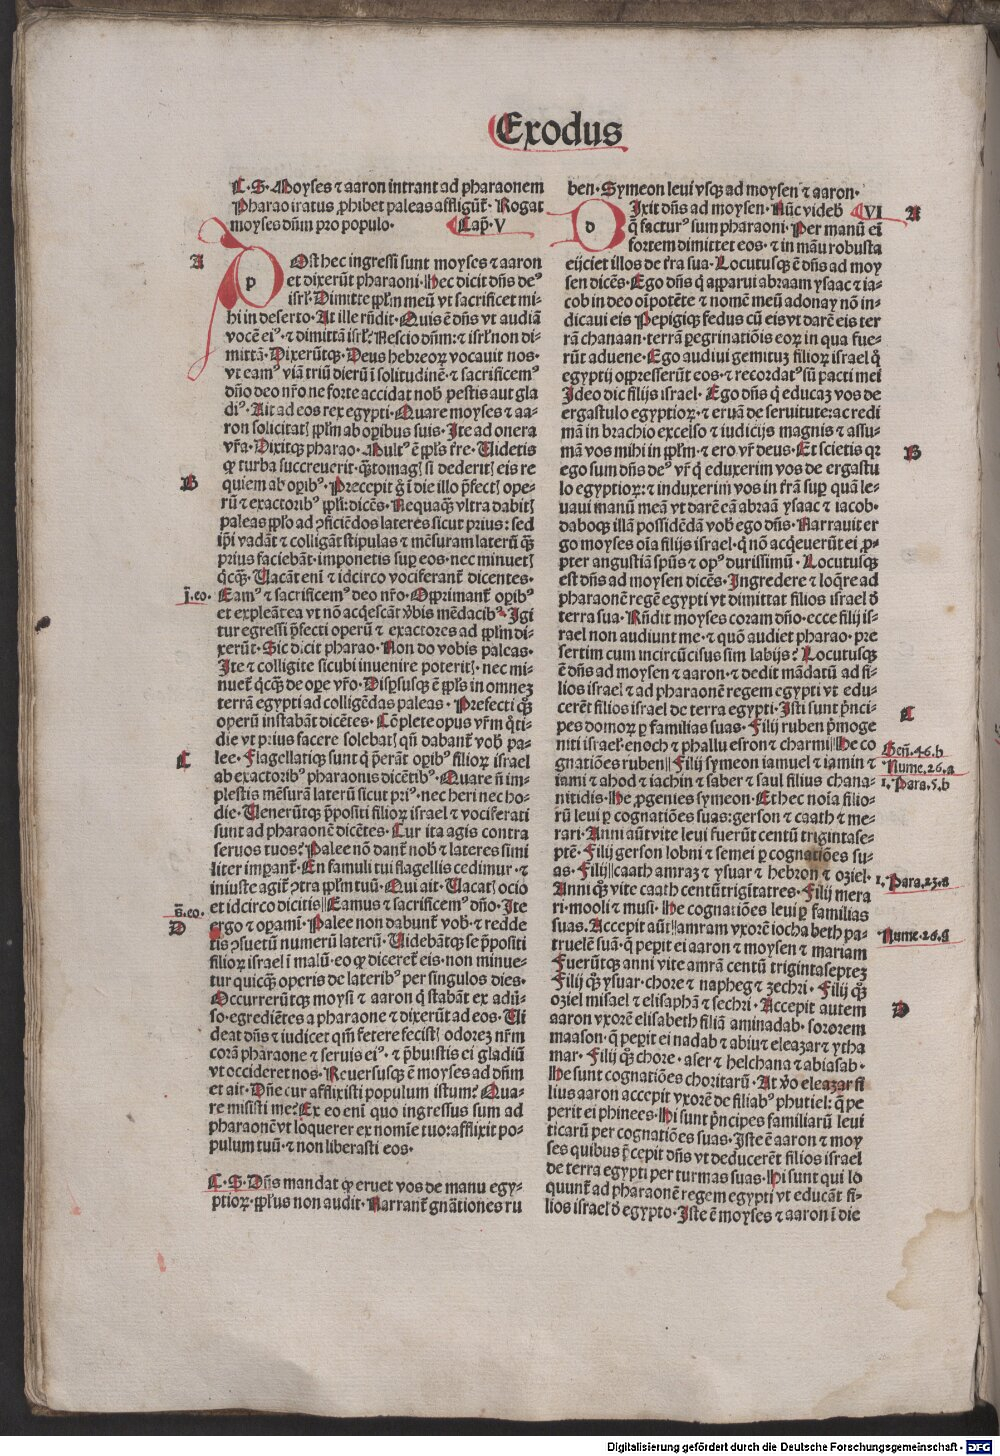 Exodus
C.S. Moyses ⁊ aaron intrant ad pharaonem
Pharao iratus ꝓhibet paleas affligūt᷑. Rogat
moyses dn̄m pro populo. Cap̄. V
A
POst hec ingressi sunt moyses ⁊ aaron
et dixerūt pharaoni. Hec dicit dn̄s deꝰ
isrl̄. Dimitte pp̄lm meū vt sacrificet mi-
hi in deserto. At ille rn̄dit. Quis ē dn̄s vt audiā
vocē eiꝰ. ⁊ dimittā isrl̄? Nescio dn̄m: ⁊ isrl̄ non di-
mittā. Dixerūtqꝫ. Deus hebreoꝝ vocauit nos.
vt eamꝰ viā triū dierū ī solitudinē. ⁊ sacrificemꝰ
dn̄o deo nr̄o ne forte accidat nob̄ pestis aut gla
diꝰ. Ait ad eos rex egypti. Quare moyses ⁊ aa-
ron solicitatꝭ pp̄lm ab oꝑibus suis. Ite ad onera
vr̄a. Dixitqꝫ pharao. Multꝰ ē pp̄ls t̄re. Uidetis
ꝙ turba succreuerit. q̄ꝫtomagꝭ si dederitꝭ eis re
B
quiem ab oꝑibꝰ. Precepit g̊ ī die illo p̄fectꝭ ope-
rū ⁊ exactoribꝰ pp̄li: dicēs. Nequaqꝫ vltra dabitꝭ
paleas pp̄lo ad ꝯficiēdos lateres sicut prius: sed
ip̄i vadāt ⁊ colligāt stipulas ⁊ mēsuram laterū qꝫ
prius faciebāt. imponetis sup̱ eos. nec minuetꝭ
q̄cqꝫ. Uacāt eni ⁊ idcirco vociferant᷑ dicentes.
j.eo.
Eamꝰ ⁊ sacrificemꝰ deo nr̄o. Opprimant᷑ oꝑibꝰ
et expleāt ea vt nō acq̄escāt v̄bis mēdacibꝰ. Igi
tur egressi p̄fecti operū ⁊ exactores ad pp̄lm di-
xerūt. Sic dicit pharao. Non do vobis paleas.
Ite ⁊ colligite sicubi inuenire poteritꝭ. nec mi-
nuet᷑ q̄cqꝫ de oꝑe vr̄o. Disꝑsusqꝫ ē pp̄ls in omneꝫ
terrā egypti ad colligēdas paleas. Prefecti qꝫ
operū instabāt dicētes. Cōplete opus vr̄m q̊ti-
die vt prius facere solebatꝭ qn̄ dabant᷑ vob̄ pa-
C
lee. Flagellatiqꝫ sunt q̄ p̄erāt oꝑibꝰ filioꝝ israel
ab exactoribꝰ pharaonis dicētibꝰ. Quare n̄ im-
plestis mēsurā laterū sicut priꝰ. nec heri nec ho-
die. Uenerūtqꝫ p̄positi filioꝝ israel ⁊ vociferati
sunt ad pharaonē dicētes. Cur ita agis contra
seruos tuos? Palee nō dant᷑ nob̄ ⁊ lateres simi
liter imꝑant᷑. En famuli tui flagellis cedimur. ⁊
iniuste agit᷑ ꝯtra pp̄lm tuū. Qui ait. Uacatꝭ ocio
s̄.eo.
et idcirco dicitis Eamus ⁊ sacrificemꝰ dn̄o. Ite
D
ergo ⁊ oꝑami. Palee non dabunt᷑ vob̄. ⁊ redde
tis ꝯsuetū numerū laterū. Uidebātqꝫ se p̄positi
filioꝝ israel ī malū. eo ꝙ diceret᷑ eis. non minue-
tur quicqꝫ operis de lateribꝰ per singulos dies.
Occurrerūtqꝫ moysi ⁊ aaron q̄ stabāt ex adū-
so. egrediētes a pharaone ⁊ dixerūt ad eos. Ui
deat dn̄s ⁊ iudicet qm̄ fetere fecistꝭ odorez nr̄m
corā pharaone ⁊ seruis eiꝰ. ⁊ p̄buistis ei gladiū
vt occideret nos. Reuersusqꝫ ē moyses ad dn̄m
et ait. Dn̄e cur afflixisti populum istum? Qua-
re misisti me? Ex eo eni quo ingressus sum ad
pharaonē vt loquerer ex nomīe tuo: afflixit po-
pulum tuū. ⁊ non liberasti eos.
C.S. Dn̄s mandat ꝙ eruet vos de manu egy-
ptioꝝ. pp̄lus non audit. Narrant᷑ gnātiones ru
ben. Symeon leui vsqꝫ ad moysen ⁊ aaron.
DIxit dn̄s ad moysen. Nūc videb̄ VI A
q̄ facturꝰ sum pharaoni. Per manū ei
fortem dimittet eos. ⁊ in māu robusta
eijciet illos de t̄ra sua. Locutusqꝫ ē dn̄s ad moy
sen dicēs. Ego dn̄s q̄ apparui abraam ysaac ⁊ ia-
cob in deo oīpotēte ⁊ nomē meū adonay nō in-
dicaui eis Pepigiqꝫ fedus cū eis vt darē eis ter
rā chanaan. terrā ꝑegrinatiōis eoꝝ in qua fue-
rūt aduene. Ego audiui gemituꝫ filioꝝ israel q̊
egyptij oppresserūt eos. ⁊ recordatꝰ sū pacti mei
Ideo dic filijs israel. Ego dn̄s q̄ educaꝫ vos de
ergastulo egyptioꝝ. ⁊ eruā de seruitute: ac redi
mā in brachio excelso ⁊ iudicijs magnis ⁊ assu-
mā vos mihi in pp̄lm. ⁊ ero vr̄ deus. Et scietis qꝛ B
ego sum dn̄s deꝰ vr̄ q̄ eduxerim vos de ergastu
lo egyptioꝝ: ⁊ induxerim vos in t̄rā suꝑ quā le-
uaui manū meā vt darē eā abraā ysaac ⁊ iacob.
daboqꝫ illā possidēdā vob̄ ego dn̄s. Narrauit er
go moyses oīa filijs israel. q̄ nō acq̄euerūt ei ꝓ-
pter angustiā sp̄us ⁊ opꝰ durissimū. Locutusqꝫ
est dn̄s ad moysen dicēs. Ingredere ⁊ loq̄re ad
pharaonē regē egypti vt dimittat filios israel d̄
terra sua. Rn̄dit moyses coram dn̄o. ecce filij is-
rael non audiunt me. ⁊ quō audiet pharao. pre
sertim cum incircūcisus sim labijs? Locutusqꝫ
ē dn̄s ad moysen ⁊ aaron. ⁊ dedit mādatū ad fi-
lios israel ⁊ ad pharaonē regem egypti vt edu-
cerēt filios israel de terra egypti. Isti sunt p̄nci- C
pes domoꝝ ꝑ familias suas. Filij ruben p̄moge
niti israel. enoch ⁊ phallu esron ⁊ charmi He co Gen̄.46.b
gnatiōes ruben Filij symeon iamuel ⁊ iamin ⁊ Nume.26.a
iami ⁊ ahod ⁊ iachin ⁊ saber ⁊ saul filius chana- 1.Para.5.b
nitidis. He ꝓgenies symeon. Et hec noīa filio-
rū leui ꝑ cognatiōes suas: gerson ⁊ caath ⁊ me-
rari. Anni aūt vite leui fuerūt centū triginta se-
ptē. Filij gerson lobni ⁊ semei ꝑ cognatiōes su-
as. Filij caath amraꝫ ⁊ ysuar ⁊ hebron ⁊ oziel. 1.Para.23.a
Anni qꝫ vite caath centū trigīta tres. Filij mera
ri. mooli ⁊ musi. He cognatiōes leui ꝑ familias
suas. Accepit aūt amram vxorē iocha beth pa- Nume.26.g
truelē suā. q̄ peꝑit ei aaron ⁊ moysen ⁊ mariam
Fuerūtqꝫ anni vite amrā centū triginta septeꝫ
Filij qꝫ ysuar. chore ⁊ napheg ⁊ zechri. Filij qꝫ
oziel misael ⁊ elisaphā ⁊ sechri. Accepit autem D
aaron vxorē elisabeth filiā aminadab. sororem
maason. q̄ peꝑit ei nadab ⁊ abiu ⁊ eleazar ⁊ ytha
mar. Filij qꝫ chore. aser ⁊ helchana ⁊ abiasab.
He sunt cognatiōes choritarū. At v̊o eleazar fi
lius aaron accepit vxorē de filiabꝰ phutiel: q̄ pe
perit ei phinees. Hi sunt p̄ncipes familiarū leui
ticarū per cognatiōes suas. Iste ē aaron ⁊ moy
ses quibus p̄cepit dn̄s vt deducerēt filios israel
de terra egypti per turmas suas. Hi sunt qui lo
quunt᷑ ad pharaonē regem egypti vt educāt fi-
lios israel d̄ egypto. Iste ē moyses ⁊ aaron ī die
Digitalisierung gefördert durch die Deutsche Forschungsgemeinschaft - DFG